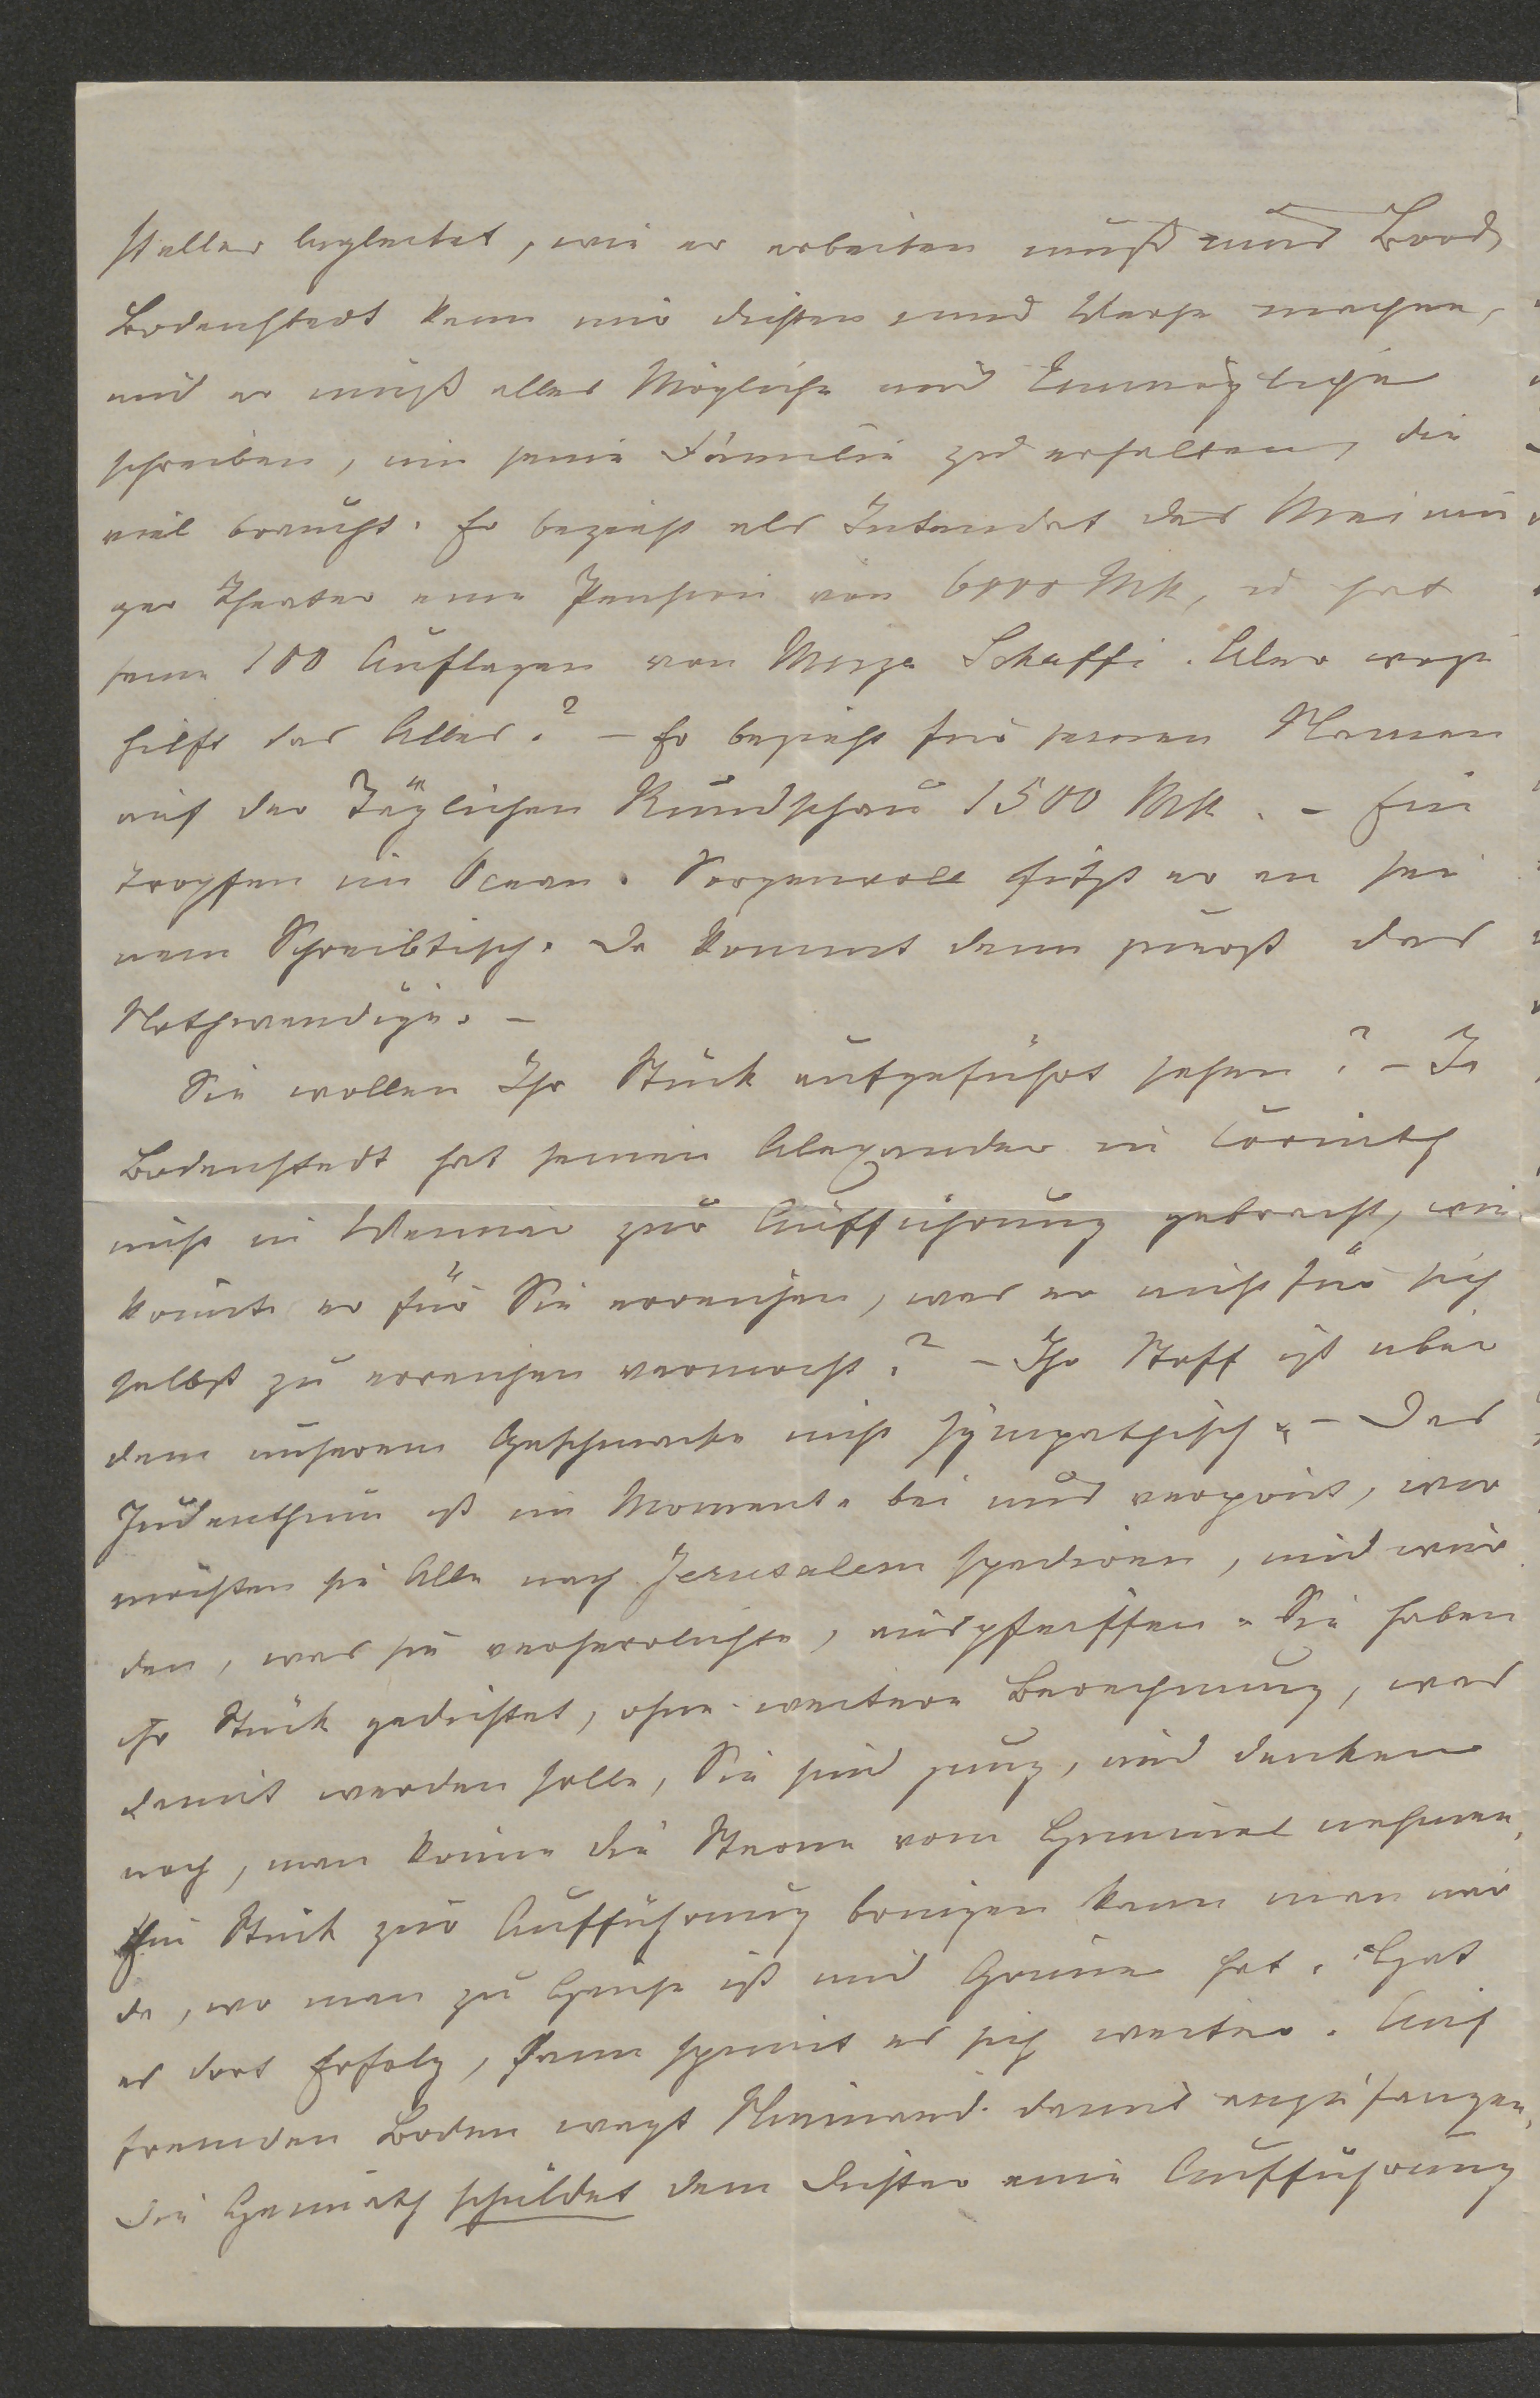 steller begleitet, wie er arbeiten muß um's Brod,
Bodenstedt kann nur dichten und Verse machen,
und er muß alles Mögliche und Unmögliche
schreiben, um seine Familie zu erhalten, die
viel braucht. Er bezieht als Intendat des Meinin
ger Theater eine Pension von 6000 Mk, er hat
seine 100 Auflagen von Mirza Schaffi. Aber was
hilft das Alles.? – Er bezieht für seinen Namen
auf der Täglichen Rundschau 1500 Mk. – Ein
Tropfen im Ocean. Sorgenvoll sitzt er an sei
nem Schreibtisch. Da kommt denn zuerst das
Nothwendige. –
Sie wollen Ihr Stück aufgeführt sehen? – Ja
Bodenstedt hat seinen Alexander in Corinth
nicht in Weimar zur Aufführung gebracht, wie
könnte er für Sie erreichen, was er nicht für sich
selbst zu erreichen vermocht? – Ihr Stoff ist über
dem unserem Geschmacke nicht sympathisch. – Das
Judenthum ist im Momente bei uns verpönt, wir
möchten sie Alle nach Jerusalem spediren, und wür
den, was sie verherrlichte, auspfeiffen. Sie haben
Ihr Stück gedichtet, ohne weitere Berechnung, was
damit werden solle, Sie sind jung, und denken
noch, man könne die Sterne vom Himmel nehmen,
Ein Stück zur Aufführung bringen kann man nur
da, wo man zu Hause ist und Gönner hat. Hat
es dort Erfolg, dann spinnt es sich weiter. Auf
fremden Boden wagt Niemand damit anzufangen,
Die Heimath schuldet dem Dichter eine Aufführung